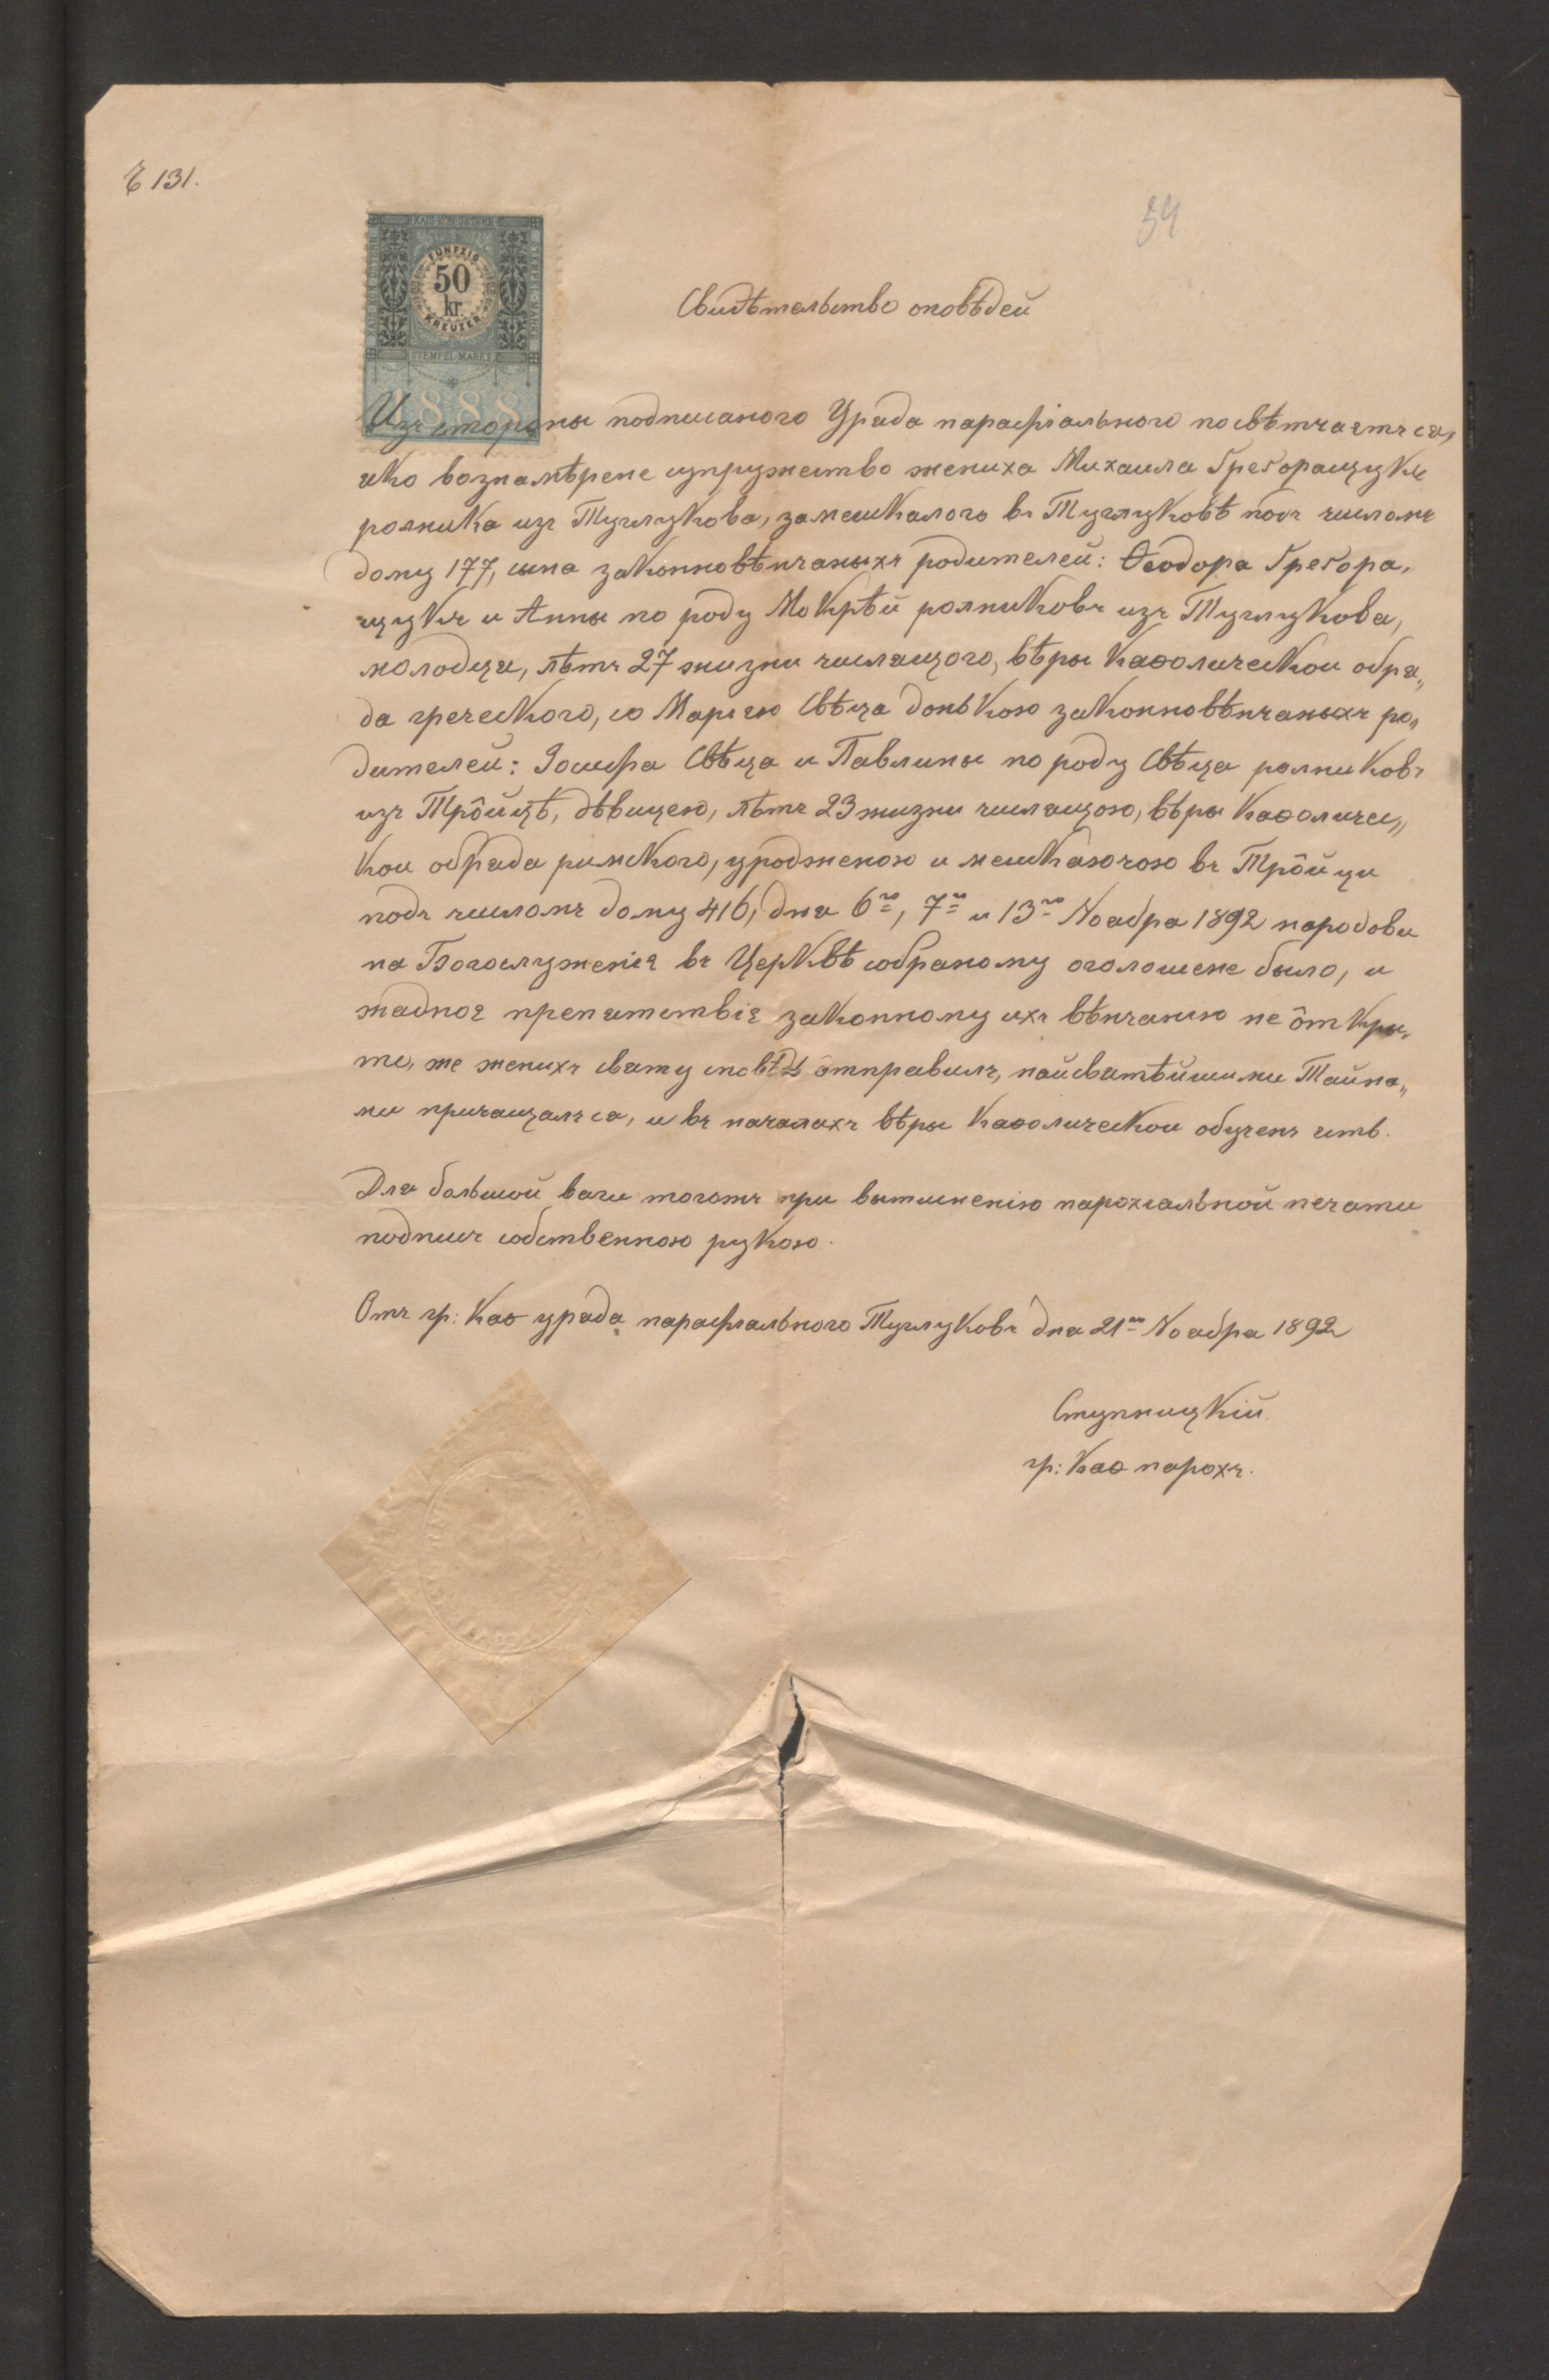 Ч 131.
54
FÜNFZIG
50
kr.
KREUZER
STEMPEL MARKE
1888
Свидѣтельство оповѣдей
Изъ стороны подписаного Уряда парафіального посвѣтчаєтъ ся,
яко вознамѣрене супружество жениха Михаила Ґреґоращука
рольника изъ Тулукова, замешкалого въ Тулуковѣ подъ числомъ
дому 177, сына законновѣнчаныхъ родителей: Ѳеодора Ґреґора„
щукъ и Анны по роду Мокрѣй рольниковъ изъ Тулукова,
молодця, лѣтъ 27 жизни числящого, вѣры каѳолическои обря„
да греческого, со Маріею Свѣца донькою законновѣнчаныхъ ро„
дителей: Іосифа Свѣца и Павлины по роду Свѣца рольниковъ
изъ Трôйцѣ, дѣвицею, лѣтъ 23 жизни числящою, вѣры каѳоличес„
кои обряда римского, уродженою и мешкаючою въ Трôйци
подъ числомъ дому 416, дня 6го, 7го и 13го Ноября 1892 народови
на Богослуженіє въ Церквѣ собраному оголошене было, и
жадноє препятствіє законному ихъ вѣнчанію не ôткры„
то, же женихъ святу сповѣдь ôтправилъ, найсвятѣйшими Тайна„
ми причащалъ ся, и въ началахъ вѣры каѳолическои обученъ єсть.
Для большой ваги тогожъ при вытисненію парохіальной печати
подписъ собственною рукою.
Отъ гр: каѳ уряда парафіального Тулуковъ дня 21го Ноября 1892
Ступницкій
гр: каѳ парохъ.